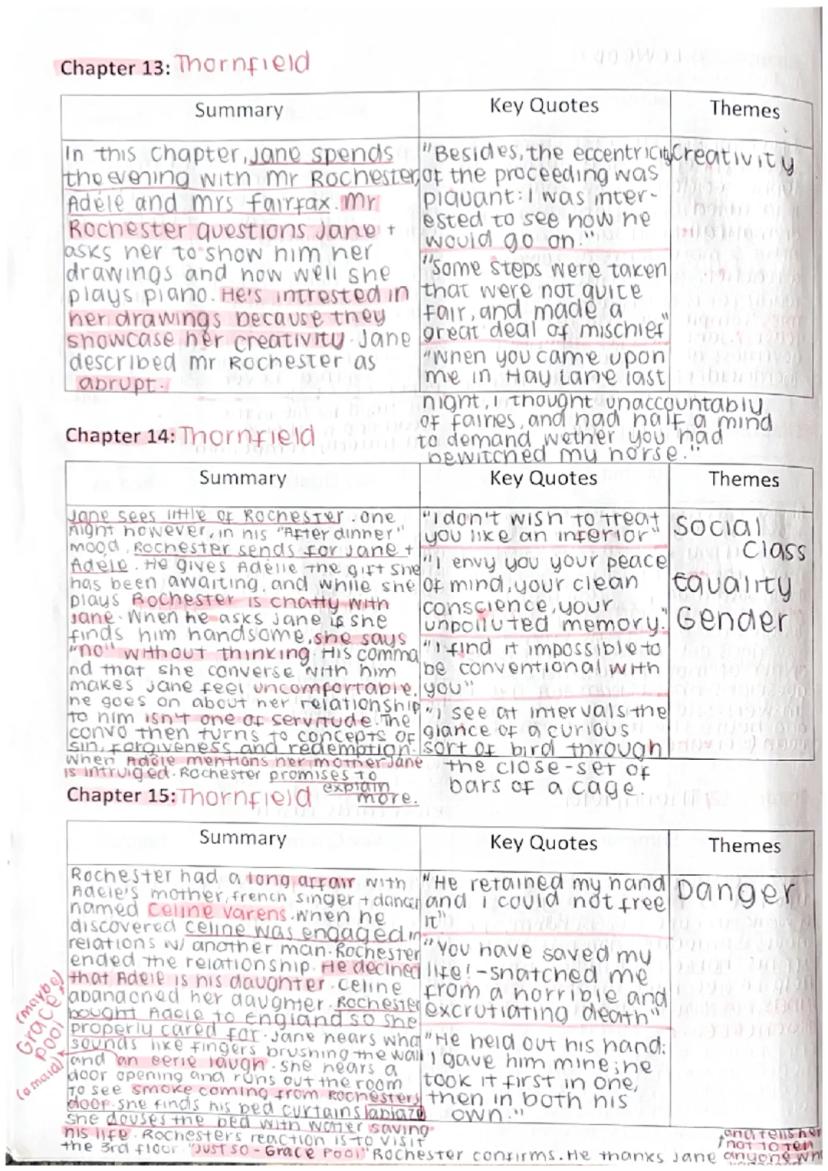 Chapter 13: Thornfield
Summary
Key Quotes
Themes
In this chapter, Jane spends
the evening with Mr Rochester,
Adéle and Mrs Fairfax. Mr
Rochester questions Jane +
asks her to show him her
drawings and how well she
plays piano. He's intrested in
her drawings because they
showcase her creativity. Jane
described Mr Rochester as
abrupt.
"Besides, the eccentricity
of the proceeding was
piquant: I was inter-
ested to see how he
would go on."
"Some steps were taken
that were not quite
fair, and made a
great deal of mischief"
"When you came upon
me in Hay Lane last
night, I thought unaccountably
of fairies, and had half a mind
to demand wether you had
bewitched my horse."
Creativity
Chapter 14: Thornfield
Summary
Key Quotes
Themes
Jane sees little of Rochester. One
night however, in his "After dinner"
mood, Rochester sends for Jane +
Adéle. He gives Adéle the gift she
has been awaiting, and while she
plays Rochester is chatty with
Jane. When he asks Jane is she
finds him handsome, she says
"no" without thinking. His comma
nd that she converse with him
makes Jane feel uncomfortable,
he goes on about her relationship
to him isn't one of servitude. The
convo then turns to concepts of
sin, forgiveness and redemption.
When Adéle mentions her mother Jane
is intruiged. Rochester promises to
explain
more.
"I don't wish to treat
you like an inferior"
"I envy you your peace
of mind, your clean
conscience, your
unpolluted memory."
"I find it impossible to
be conventional with
you"
"I see at intervals the
glance of a curious
sort of bird through
the close-set of
bars of a cage.
Social
Class
Equality
Gender
Chapter 15: Thornfield
Summary
Key Quotes
Themes
Rochester had a long affair with
Adéle's mother, french singer + dancer
named Celine Varens. When he
discovered Celine was engaged in
relations w/ another man. Rochester
ended the relationship. He declined
that Adéle is his daughter. Celine
abandoned her daughter. Rochester
bought Adéle to England so she
properly cared for. Jane hears what
sounds like fingers brushing the wall
and an eerie laugh. She hears a
door opening and runs out the room
to see smoke coming from Rochesters
door she finds his bed curtains ablaze
she douses the bed with water saving
his life. Rochesters reaction is to visit
the 3rd floor. "Just so - Grace Pool" Rochester confirms. He thanks Jane
and tells her
not to tell
anyone
(maybe)
Grace
Pool
(a maid)
"He retained my hand
and I could not free
it"
"You have saved my
life! - snatched me
from a horrible and
excrutiating death"
"He held out his hand;
I gave him mine; he
took it first in one,
then in both his
own."
Danger